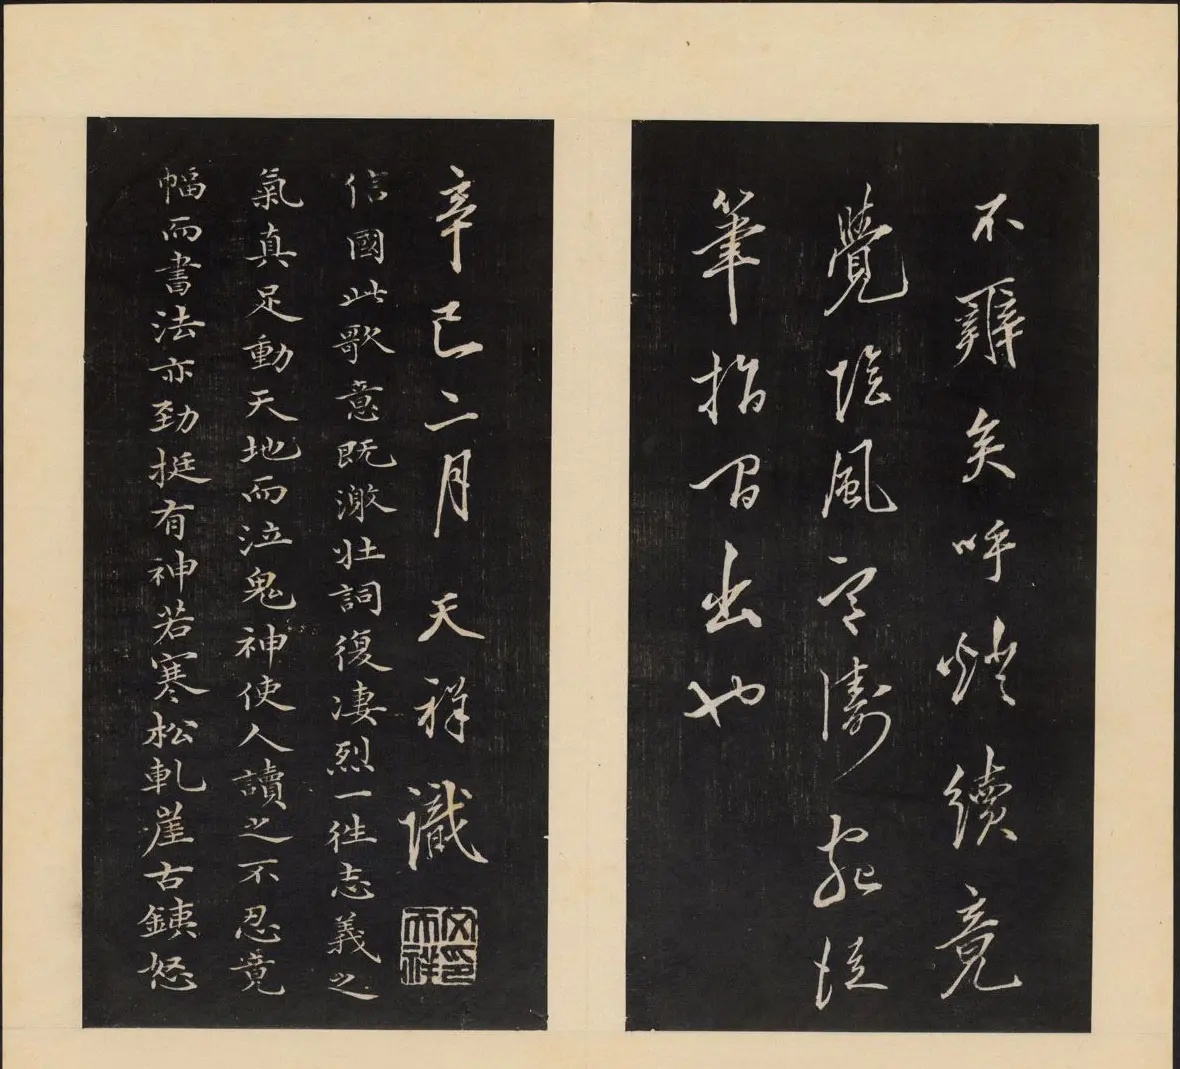 不難矣呼燈續竟
覺陰風
筆指間出也
辛巳二月天祥識
文天祥印
信國此歌意既激壯詞復凄烈一往志義之
氣真足動天地而泣鬼神使人讀之不忍竟
幅而書法亦勁挺有神若寒松軋崖古鐵怒